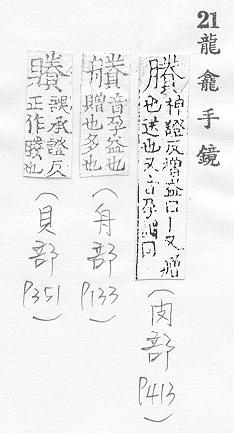 21 龍龕手鏡
賸 神證反增益曰丨又贈
也送也又音孕同
(肉部 P413)
音孕益也
贈也多也
(舟部 P133)
誤承證反
正作賸也
(貝部 P351)